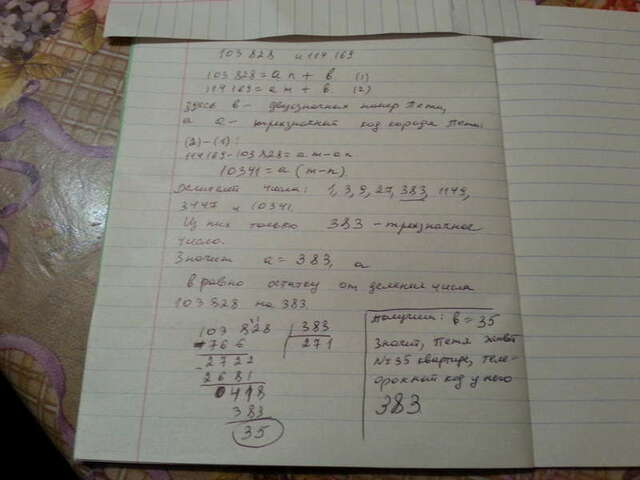 103 828 и 114 169
103 828 = a n + b (1)
114 169 = a m + b (2)
Здесь b - двузначный номер Пети,
а a - трехзначный код города Пети.
(2)-(1):
114 169-103 828 = a m - a n
10341 = a (m-n)
Делители числа: 1, 3, 9, 27, 383, 1149,
3447 и 10341.
Из них только 383 - трехзначное
число.
Значит a = 383, а
b равно остатку от деления числа
103 828 на 383.
103 828 | 383
- 766 271
2722
- 2681
0418
383
35
Получим: b = 35
Значит, Петя живёт
№ 35 квартире, теле-
фонный код у него
383